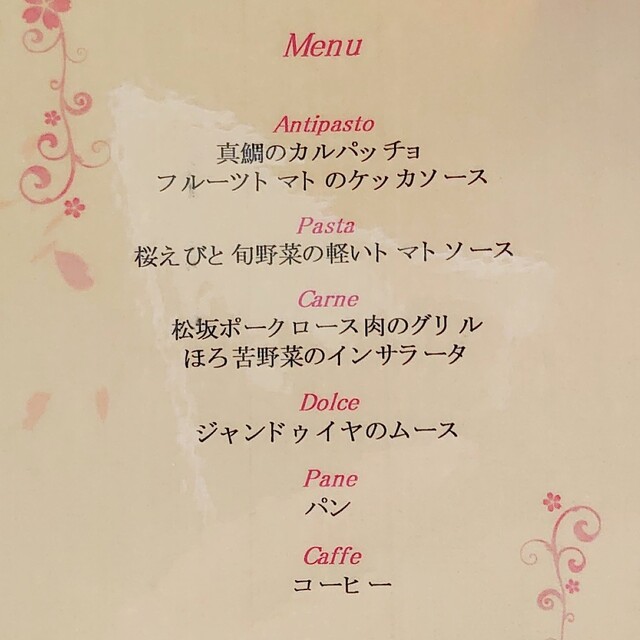 Menu
Antipasto
真鯛のカルパッチョ
フルーツトマトのケッカソース
Pasta
桜えびと旬野菜の軽いトマトソース
Carne
松坂ポークロース肉のグリル
ほろ苦野菜のインサラータ
Dolce
ジャンドゥイヤのムース
Pane
パン
Caffe
コーヒー